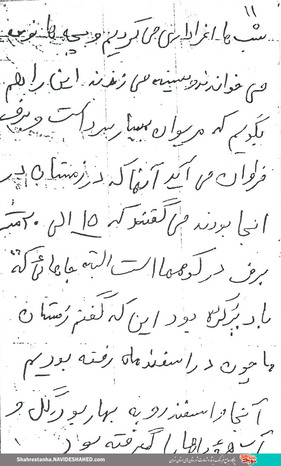 ۱۱
شب ها عزاداری می کردیم و بچه ها نوحه
می خواندند و سینه می زدند این را هم
بگویم که مریوان بسیار سرد است و برف
فراوان می آید آنها که در زمستان در
انجا بودند می گفتند که ۱۵ الی ۲۰ متر
برف در کوهها است البته جاهائی که
باد پرکرده بود این که گفتم زمستان
ما چون در اسفند ماه رفته بودیم
آنجا و اسفند رو به بهار بود گل و
گرفته بود
Shahrestanha.NAVIDESHAHED.com